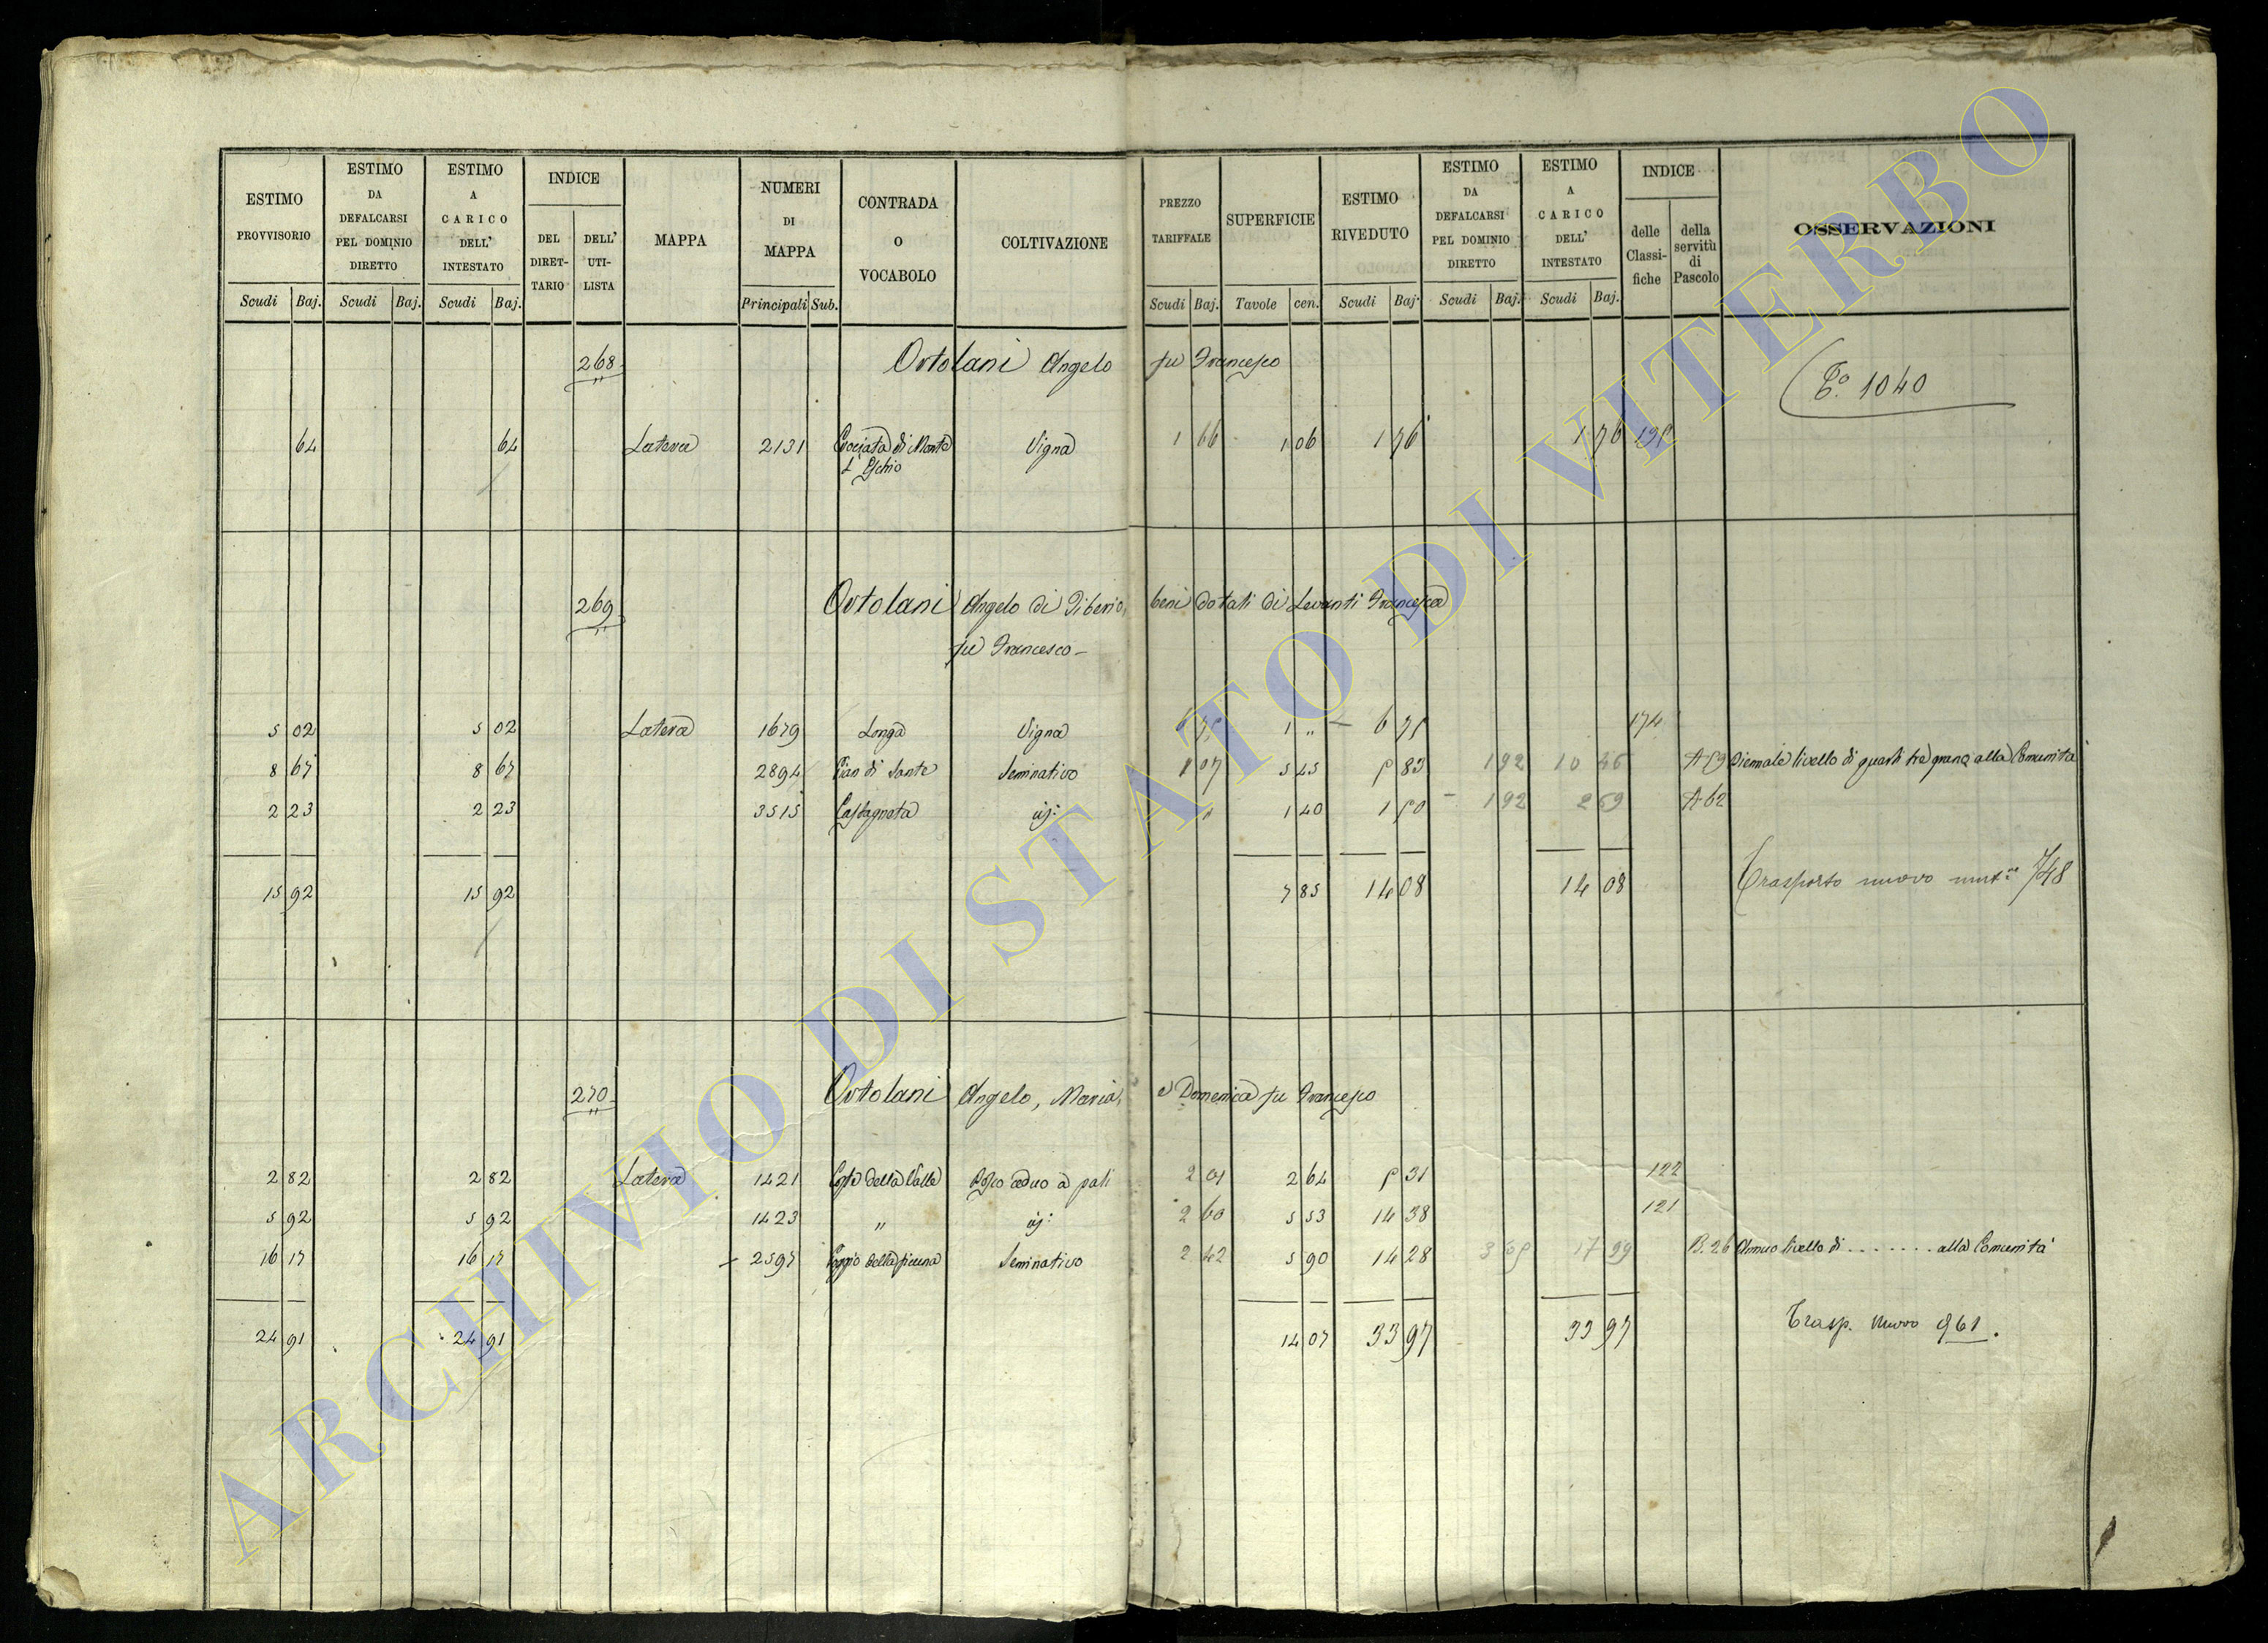 ESTIMO PROVVISORIO Scudi Baj.
ESTIMO DA DEFALCARSI PEL DOMINIO DIRETTO Scudi Baj.
ESTIMO A CARICO DELL' INTESTATO Scudi Baj.
INDICE DEL DIRET- TARIO DELL' UTI- LISTA
MAPPA
NUMERI DI MAPPA Principali Sub.
CONTRADA O VOCABOLO
COLTIVAZIONE
PREZZO TARIFFALE Scudi Baj.
SUPERFICIE Tavole cen.
ESTIMO RIVEDUTO Scudi Baj.
ESTIMO DA DEFALCARSI PEL DOMINIO DIRETTO Scudi Baj.
ESTIMO A CARICO DELL' INTESTATO Scudi Baj.
INDICE delle Classi- fiche della servitù di Pascolo
OSSERVAZIONI
268 Ortolani Angelo fu Francesco
1040
64 64 Latera 2131 di Monte Vigna 1 66 1 06 1 76 1 76
269 Ortolani Angelo di Tiberio, beni dotali di Levanti Francesca
fu Francesco
5 02 5 02 Latera 1679 Longa Vigna 1 " 174
8 67 8 67 2894 Pian di Sante Seminativo 5 45 1 92 livello di quarti tre grano alla Comunità
2 23 2 23 3515 Castagneta 1 40 1 92 A 62
15 92 15 92 7 85 14 08 14 08 Trasporto nuovo 748
270 Ortolani Angelo, Maria, e Domenica fu Francesco
2 82 2 82 Latera 1421 Coste della Valle Bosco ceduo a pali 2 64 122
5 92 5 92 1423 " 2 60 5 53 14 38 121
16 17 16 17 2597 Poggio della Seminativo 2 42 5 90 14 28 B. 26 Annuo livello di ........ alla Comunità
24 91 24 91 14 07 33 97 33 97 Trasp. nuovo 961.
ARCHIVIO DI STATO DI VITERBO